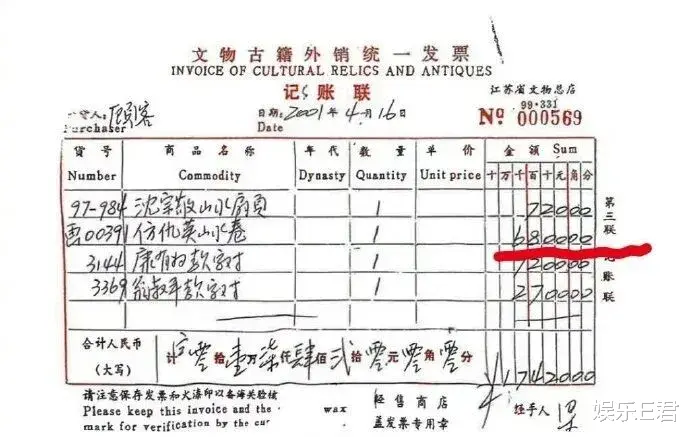 文物古籍外销统一发票
INVOICE OF CULTURAL RELICS AND ANTIQUES
记账联
江苏省文物总店
99·331
货人: 顾客
Purchaser
日期: 2001年4月16
Date
№ 000569
货号 商品名称 年代 数量 单价 金额 Sum
Number Commodity Dynasty Quantity Unit price 十万千百十元角分
97-984 沈宗敬山水扇页 1 72000
00391 仿仇英山水卷 1 680000
3144 康有为款字对 1 720000
3369 翁叔平款字对 1 270000
第三联 记账联
合计人民币
(大写)
计 零拾壹万柒仟肆佰弍拾零元零角零分 ¥1742000
请注意保存发票和火漆印以备海关验核
Please keep this invoice and the wax
mark for verification by the cu
经售商店
盖发票专用章
经手人 梁
娱乐E君